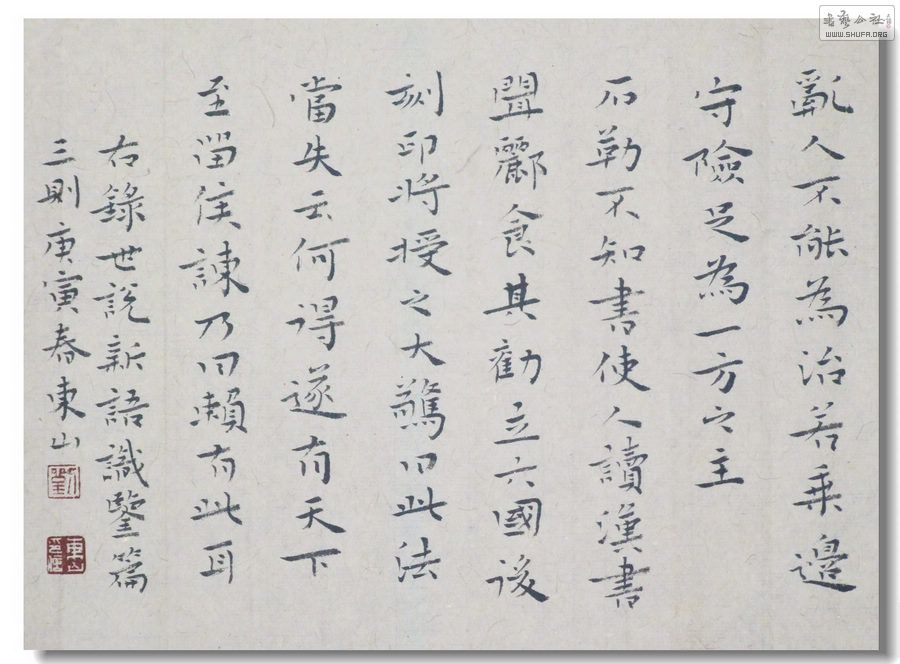 亂人不能為治若乗邊
守險足為一方之主
石勒不知書使人讀漢書
聞酈食其勸立六國後
刻印將授之大驚曰此法
當失云何得遂有天下
至留侯諫乃曰賴有此耳
右錄世說新語識鑒篇
三則庚寅春東山
WWW.SHUFA.ORG